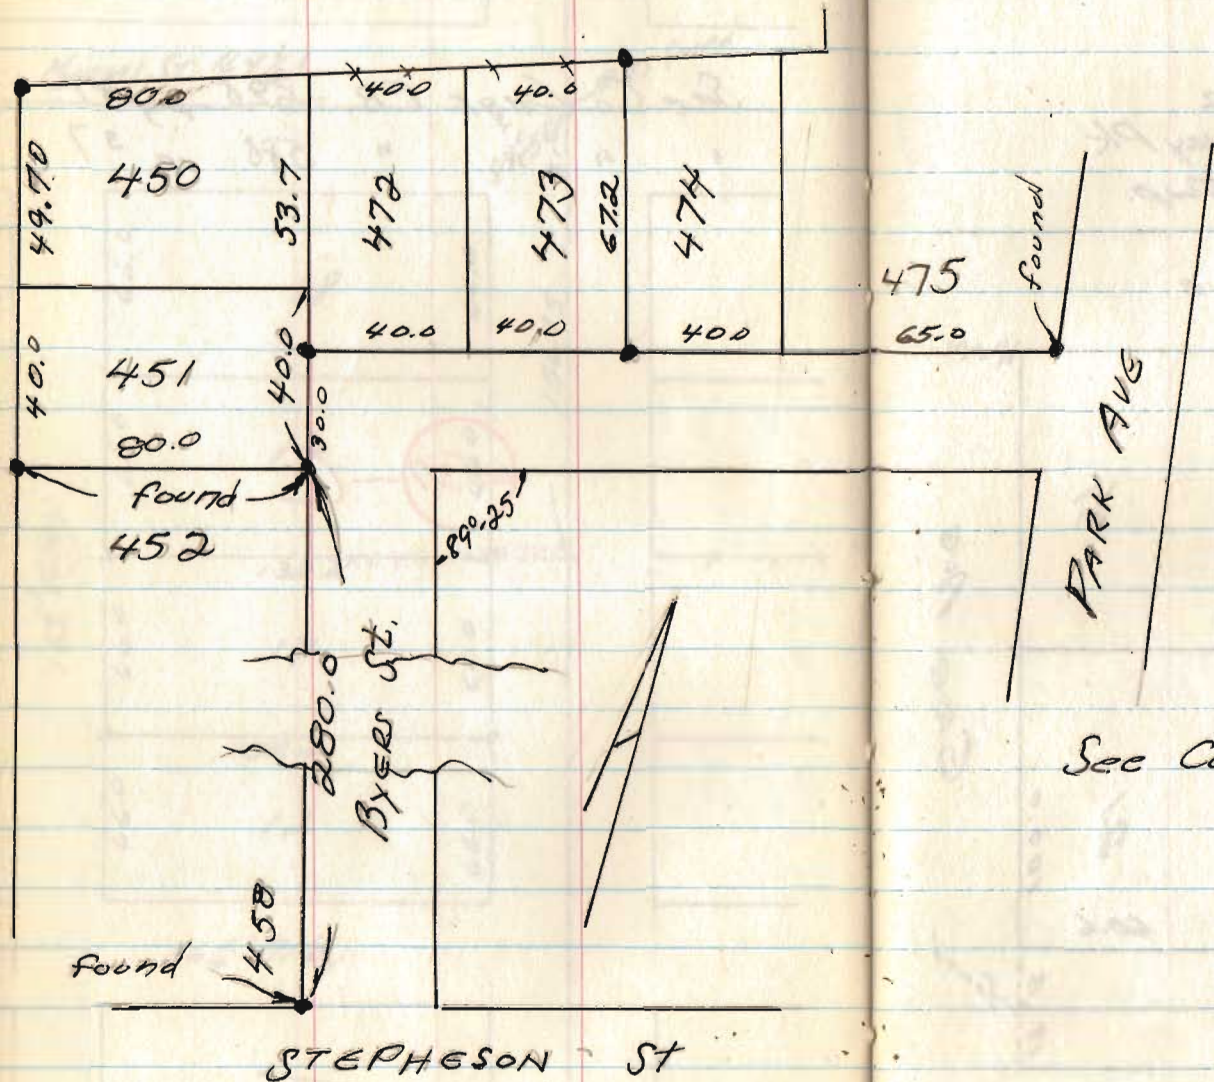 80.0
40.0
40.0
49.70
450
53.7
472
473
67.2
474
475
found
40.0
40.0
40.0
65.0
40.0
451
40.0
30.0
80.0
found
452
89°-25'
PARK AVE
280.0
BYERS St.
See
458
found
STEPHESON St